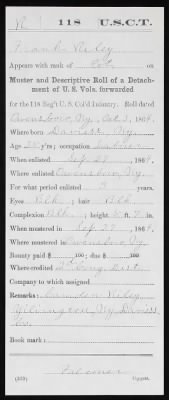 R | 118 | U.S.C.T.
Frank Riley
Appears with rank of Pvt. on
Muster and Descriptive Roll of a Detach-
ment of U. S. Vols. forwarded
for the 118 Reg't U. S. Col'd Infantry. Roll dated
Owensboro, Ky. Oct. 3, 1864.
Where born Daviess, Ky.
Age 22 y'rs; occupation Laborer
When enlisted Sep. 27, 1864.
Where enlisted Owensboro, Ky.
For what period enlisted 3 years.
Eyes Blk.; hair Blk.
Complexion Blk.; height 5 ft. in.
When mustered in Sep. 27, 1864.
Where mustered in Owensboro, Ky.
Bounty paid $ 100; due $ 100
Where credited 2d Cong. Dist.
Company to which assigned
Remarks: Riley
Ky. Daviess
Co.
Book mark:
(339) Copyist.